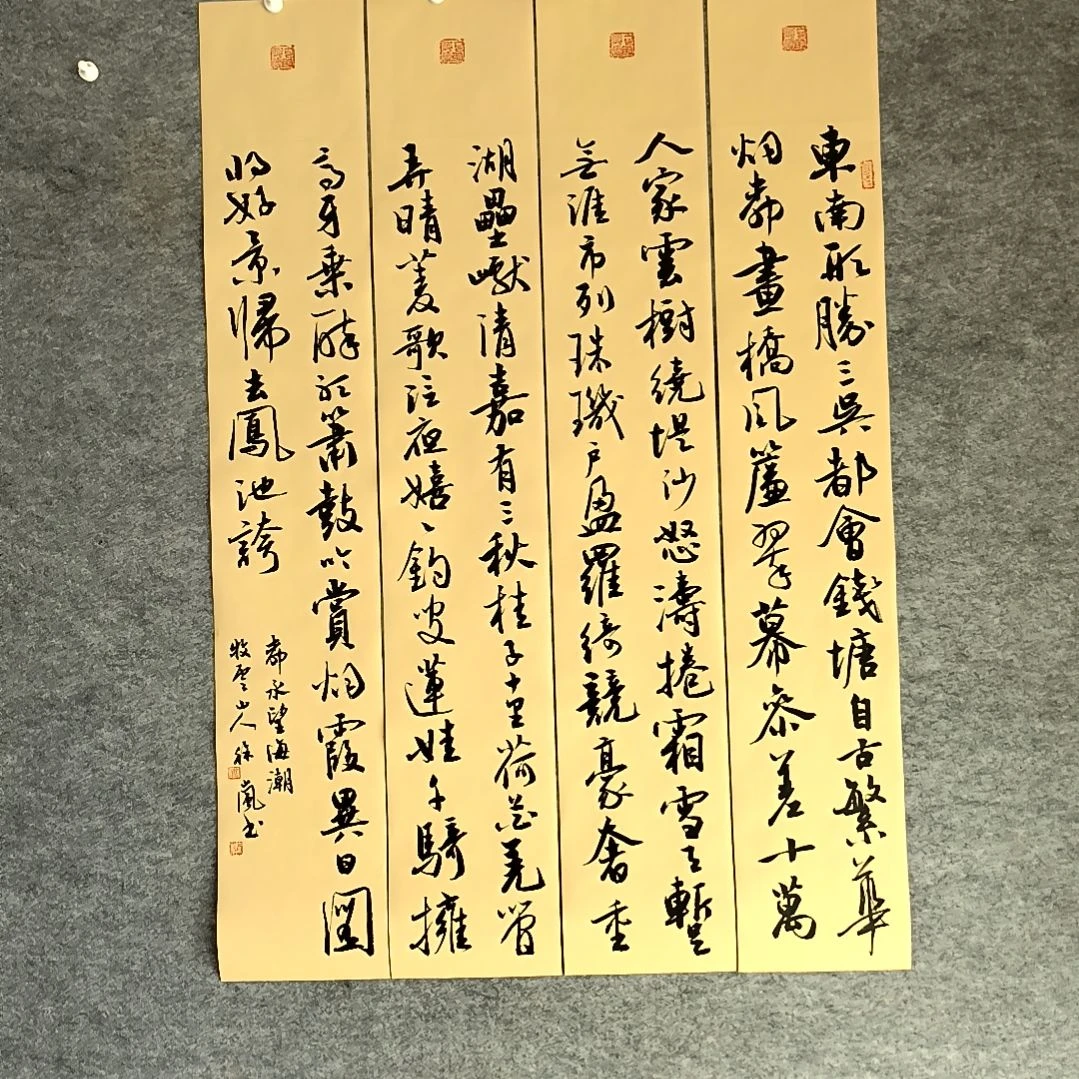 東南形勝三吳都會錢塘自古繁華
烟柳畫橋風簾翠幕參差十萬
人家雲樹繞堤沙怒濤捲霜雪天塹
無涯市列珠璣戶盈羅綺競豪奢重
湖壘巘清嘉有三秋桂子十里荷花羌管
弄晴菱歌泛夜嬉〻釣叟蓮娃千騎擁
高牙乘醉聽簫鼓吟賞烟霞異日圖
將好景歸去鳳池誇
柳永望海潮
牧雲山人徐嵐書